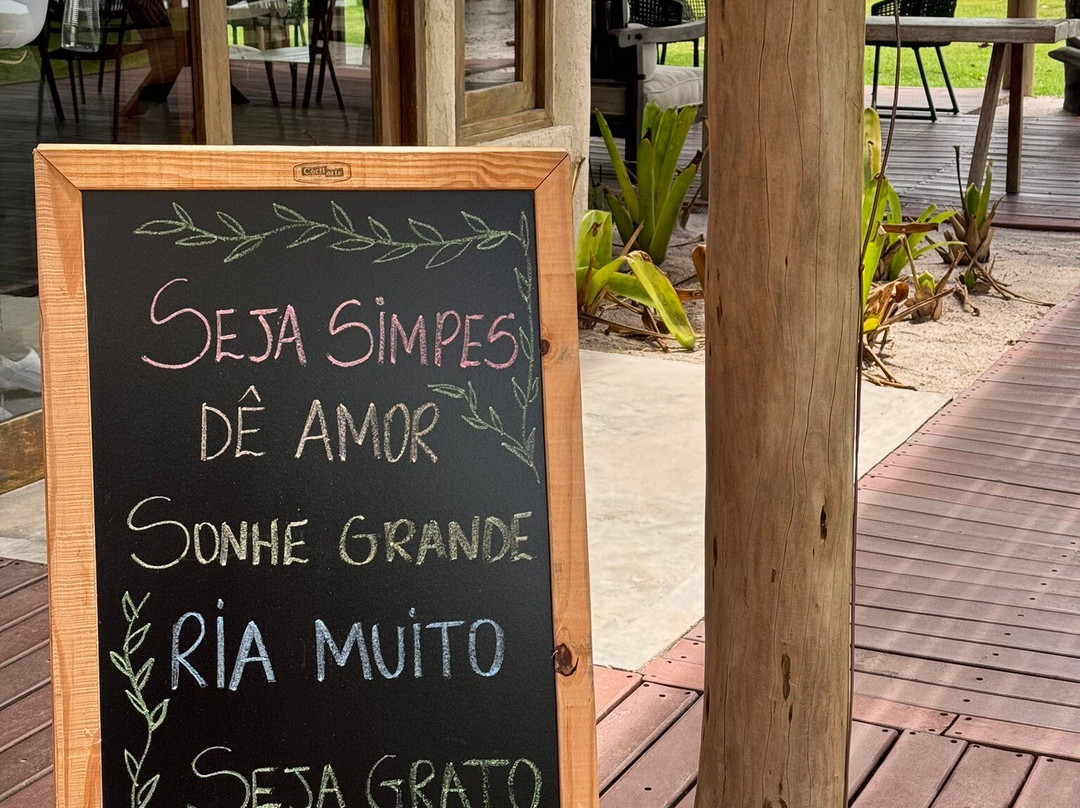 CorTarte
SEJA SiMPES
DÊ AMOR
SONHE GRANDE
RiA MUiTO
SEJA GRATO